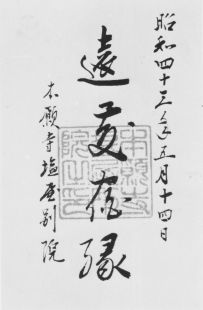 昭和四十三年五月十四日
遠慶宿縁
本願寺塩屋別院